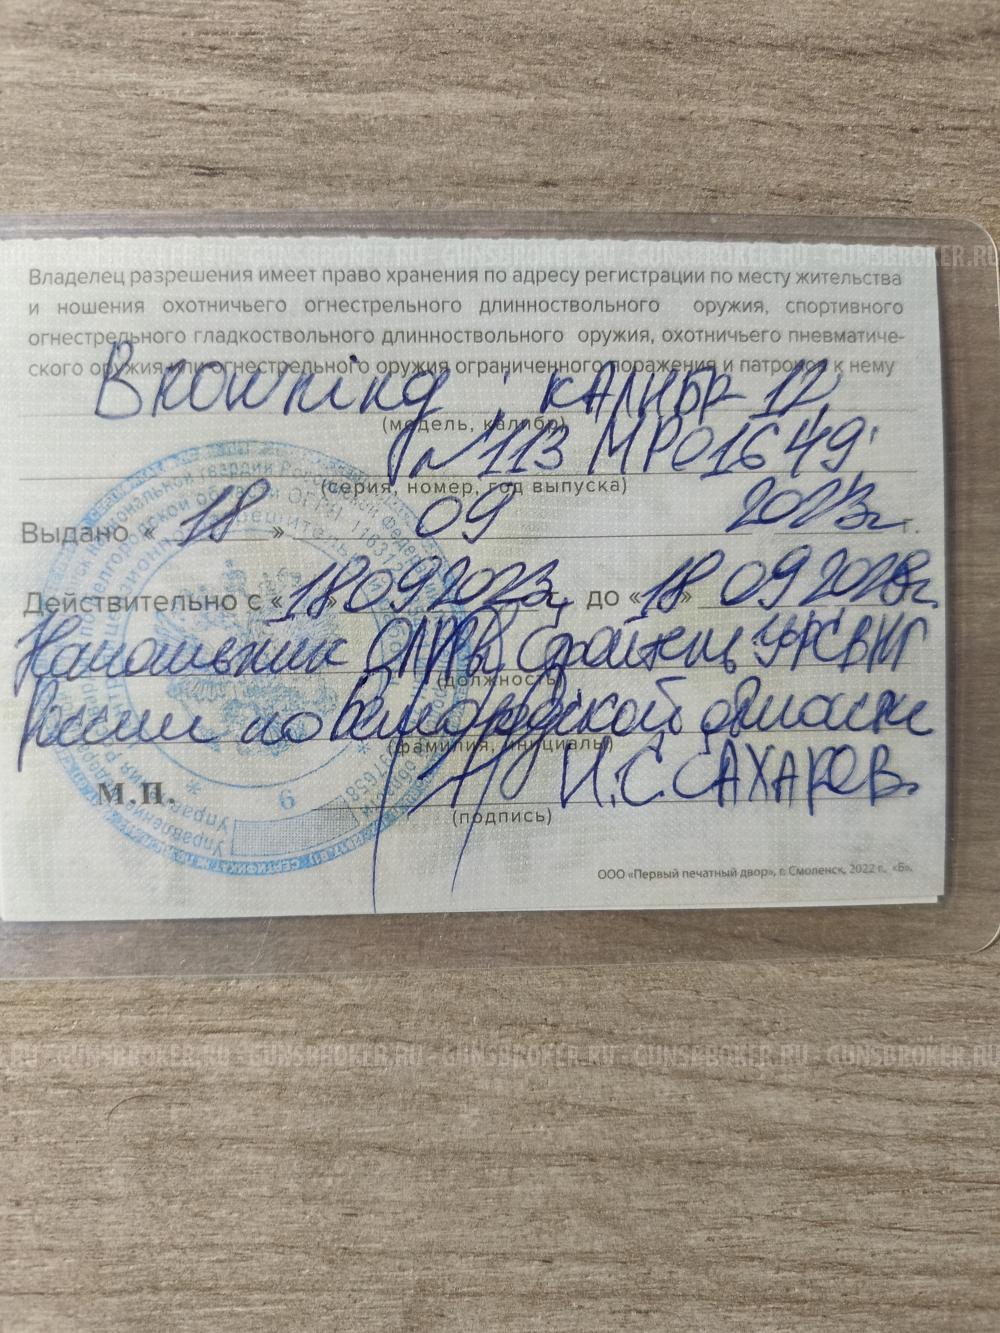 Владелец разрешения имеет право хранения по адресу регистрации по месту жительства
и ношения охотничьего огнестрельного длинноствольного оружия, спортивного
огнестрельного гладкоствольного длинноствольного оружия, охотничьего пневматиче-
ского оружия или огнестрельного оружия ограниченного поражения и патронов к нему
Browning, КАЛИБР 12,
(модель, калибр)
№113МР01649
(серия, номер, год выпуска)
Выдано «18» 09 2023г г.
Действительно с «18» 09 2023г. до «18» 09 2028г.
Начальник ОЛРР УРСВНГ
(должность)
России по Белгородской области
(фамилия, инициалы)
И.С. САХАРОВ
М.П.
(подпись)
6
ООО «Первый печатный двор», г. Смоленск, 2022 г., «Б».
GUNSBROKER.RU - GUNSBROKER.RU - GUNSBROKER.RU - GUNSBROKER.RU